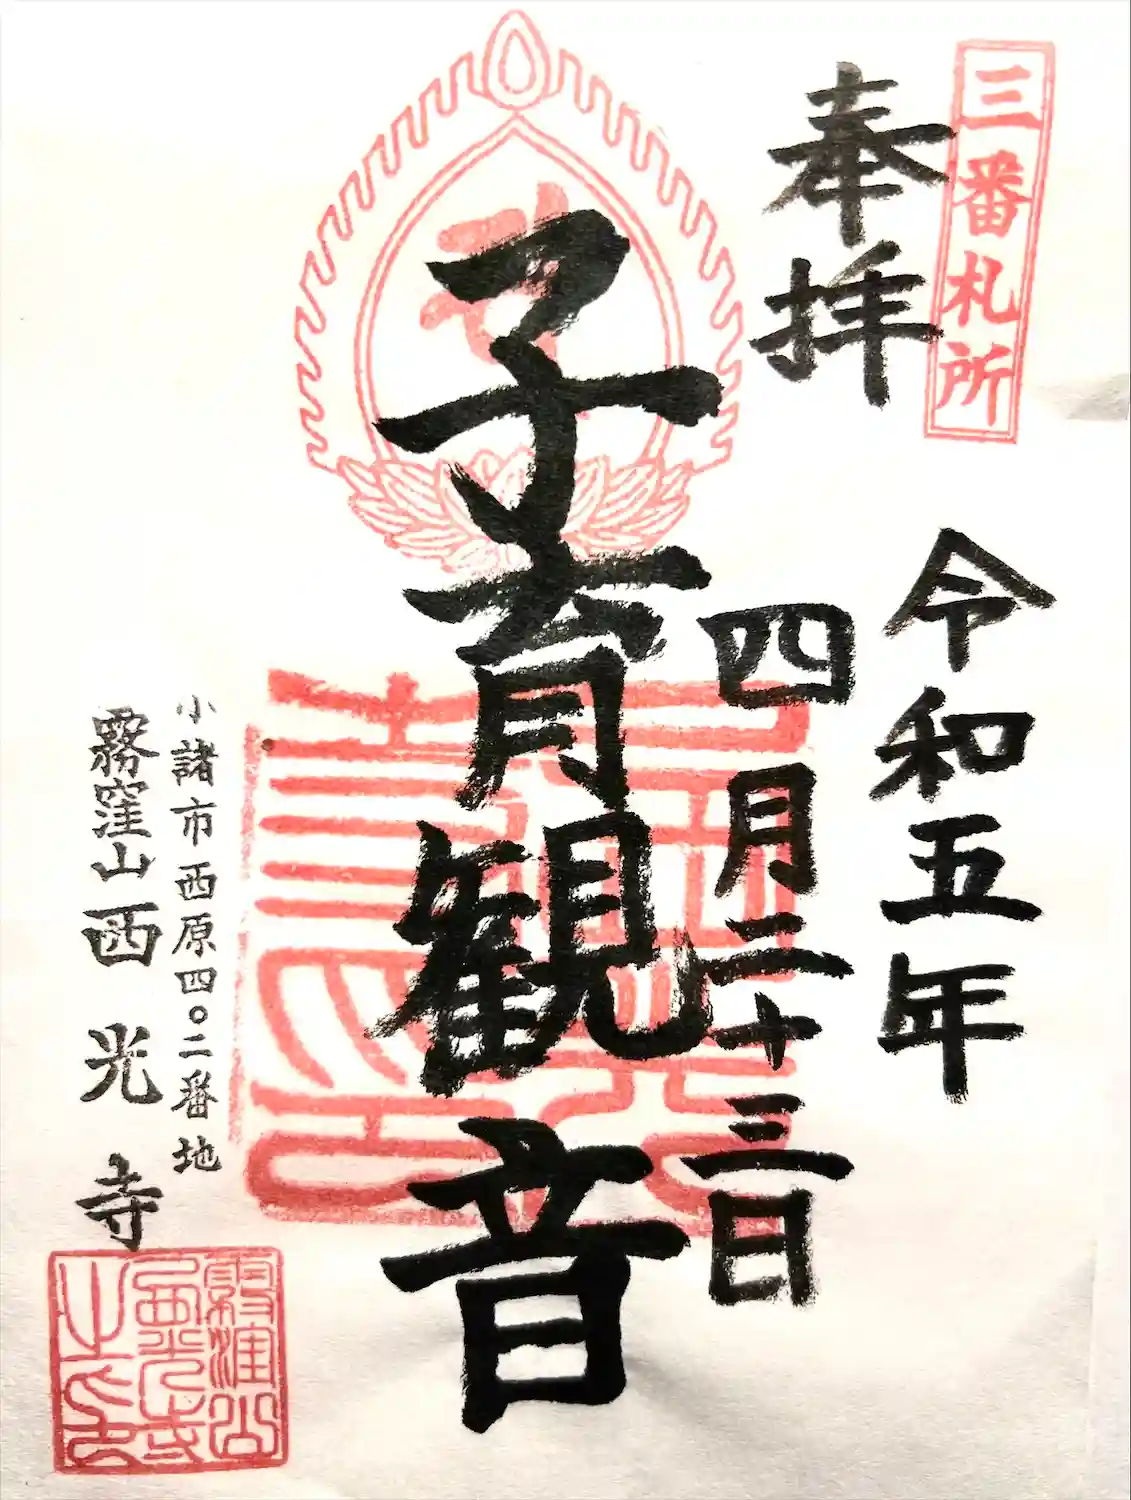 三番札所
奉拝
令和五年
四月二十三日
子育観音
小諸市西原四〇二番地
霧窪山西光寺